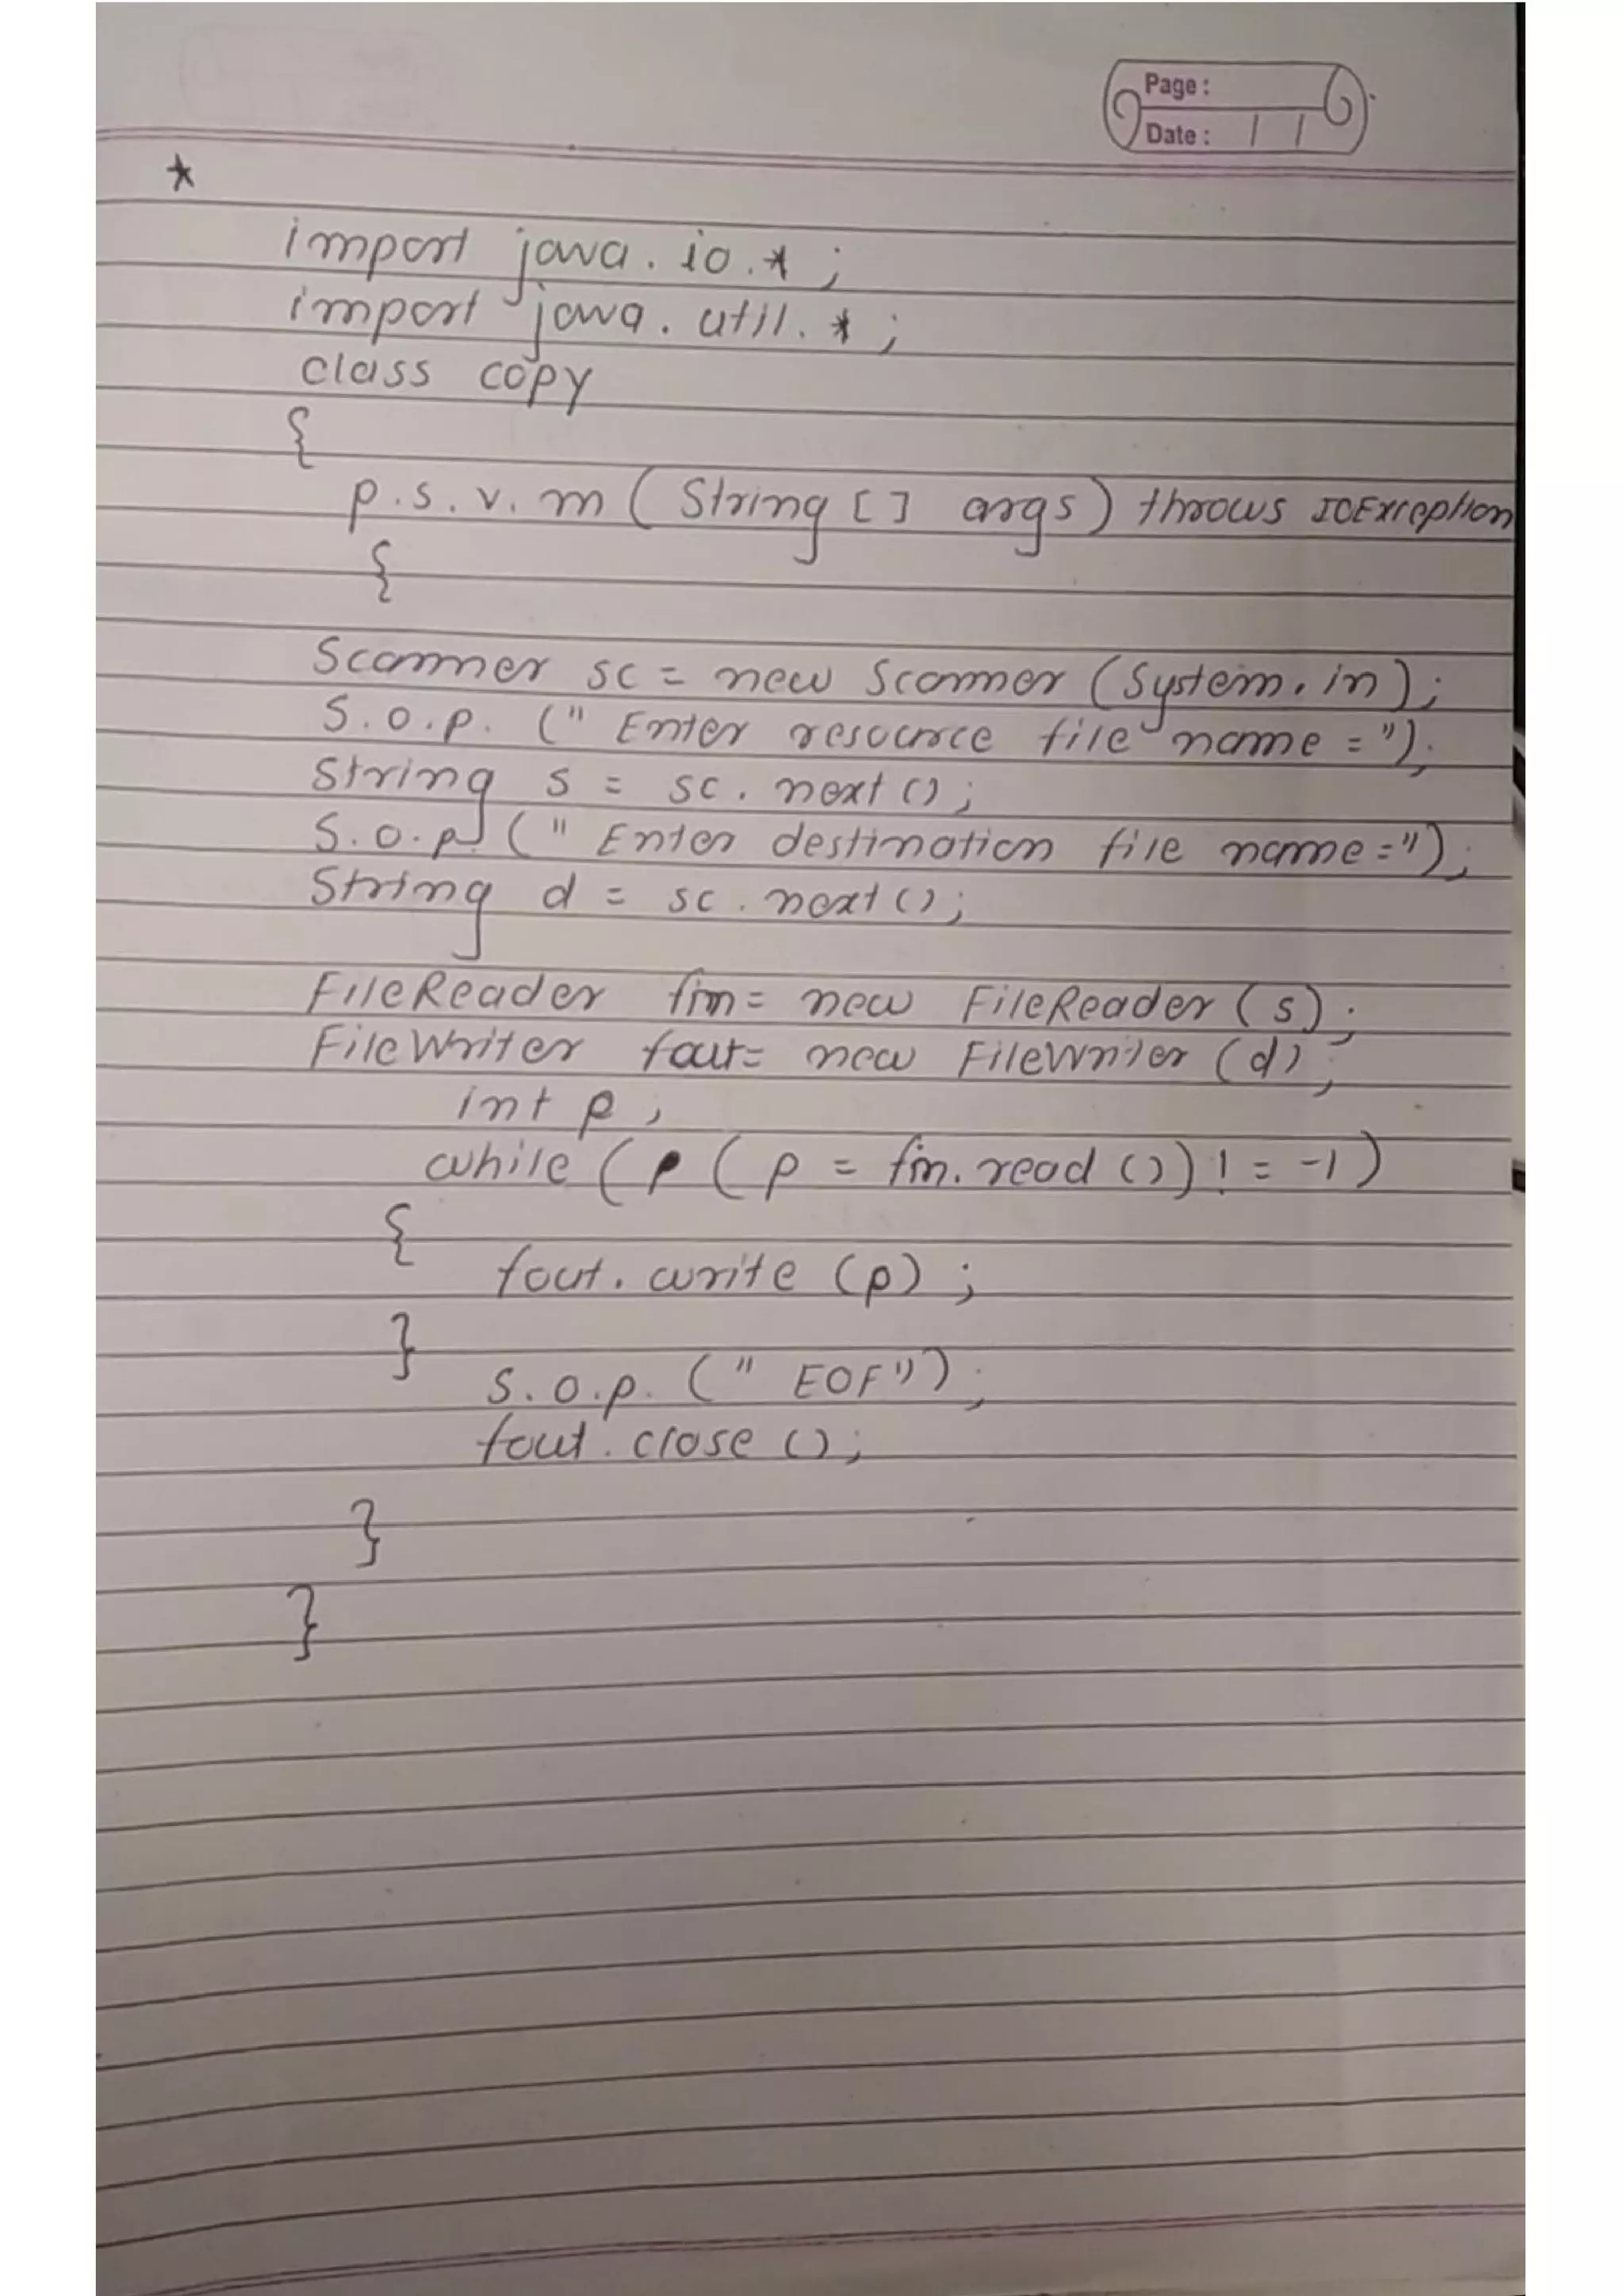 Page :
Date : / /
*
import java.io.*;
import java.util.*;
class copy
{
p.s.v.m (String [] args) throws IOException
{
Scanner sc = new Scanner (System.in);
S.o.p. (" Enter resource file name = ");
String s = sc.next();
S.o.p (" Enter destination file name =");
String d = sc.next();
FileReader fin = new FileReader (s);
FileWriter fout = new FileWriter (d);
int p;
while ( ( p = fin.read ()) != -1)
{
fout.write (p);
}
S.o.p. (" EOF");
fout.close ();
}
}